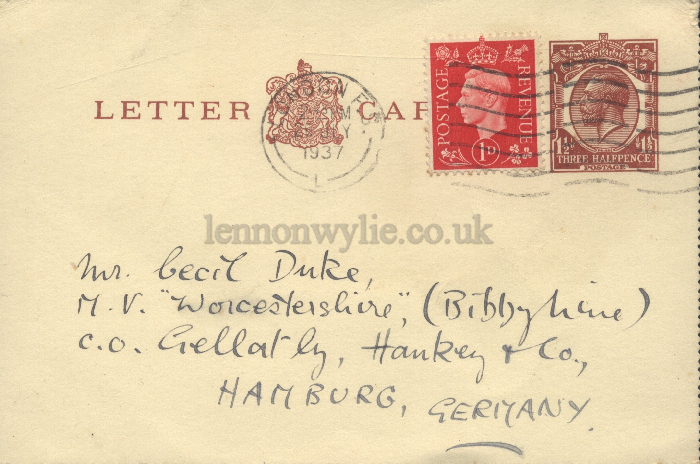 LETTER CAR
LONDON F.S.
1937
POSTAGE REVENUE
1D
1½ 1½
THREE HALFPENCE
POSTAGE
lennonwylie.co.uk
Mr. Cecil Duke,
M.V. "Worcestershire", (Bibby Line)
c.o. Gellatly, Hankey & Co.,
HAMBURG, GERMANY.